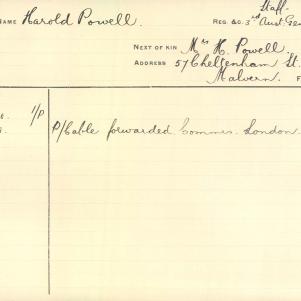 Staff.
NAME Harold Powell. REG. &C. 3rd Aust. Gen
NEXT OF KIN Mrs H. Powell,
ADDRESS 57 Cheltenham St.
Malvern. F
1/P
P/Cable forwarded Commns. London